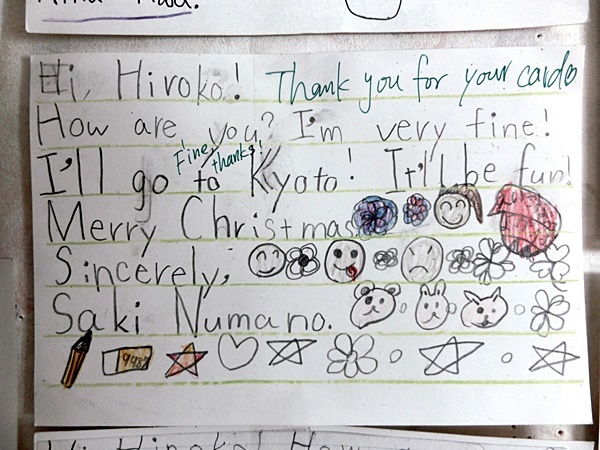 Hi, Hiroko! Thank you for your card
How are you? I'm very fine!
Fine, thanks!
I'll go to Kyoto! It'll be fun!
Merry Christmas
Sincerely,
Saki Numano.